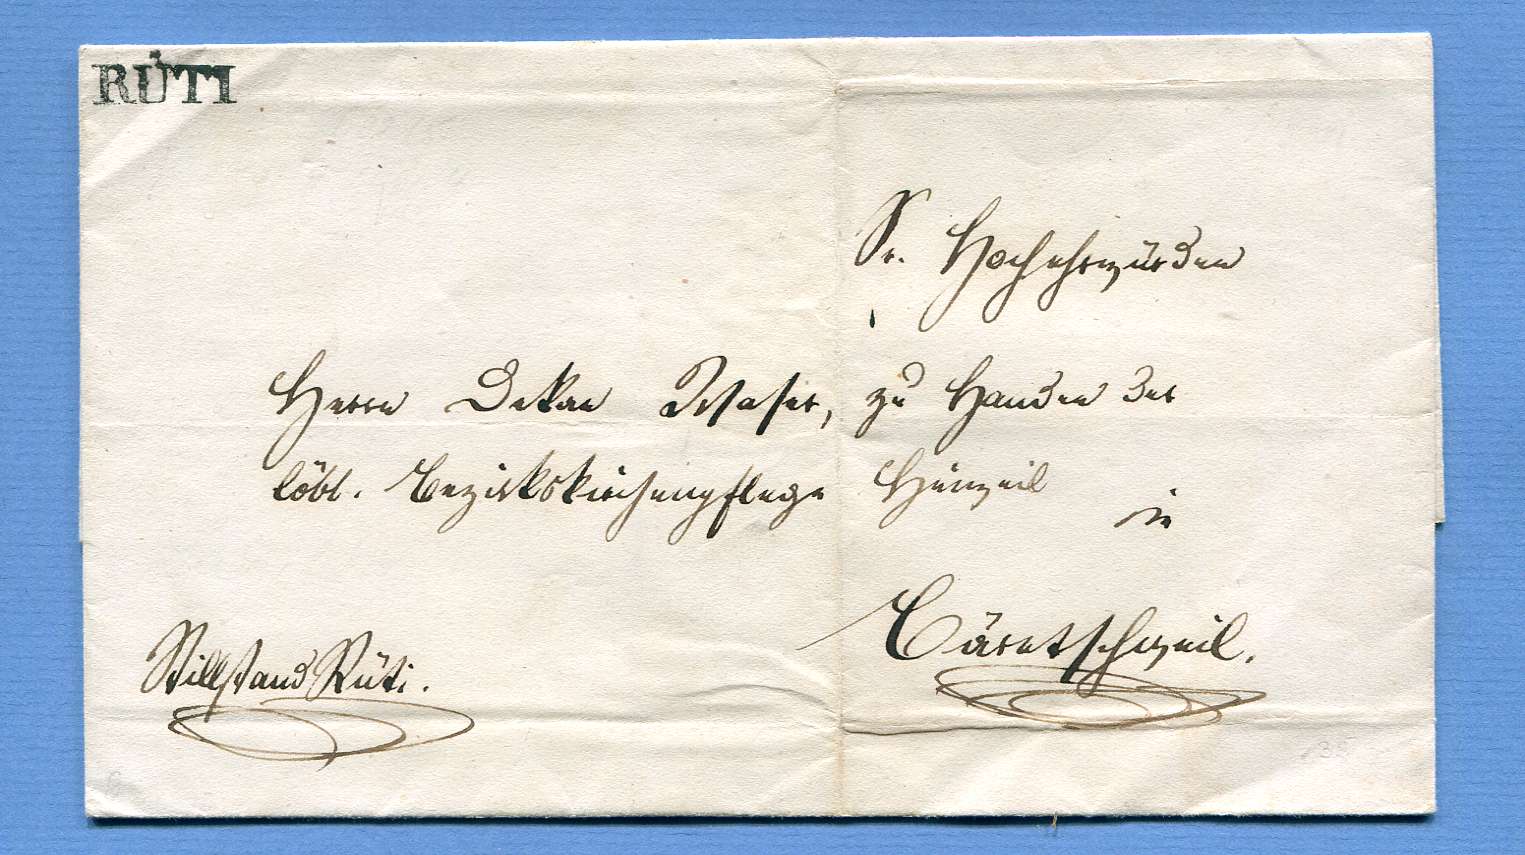 RÜTI
Sr. Hochehrwürden
Herrn Dekan Waser, zu Handen der
löbl. Bezirkskirchenpflege Hinweil
in
Bäretschweil.
Stillstand Rüti.